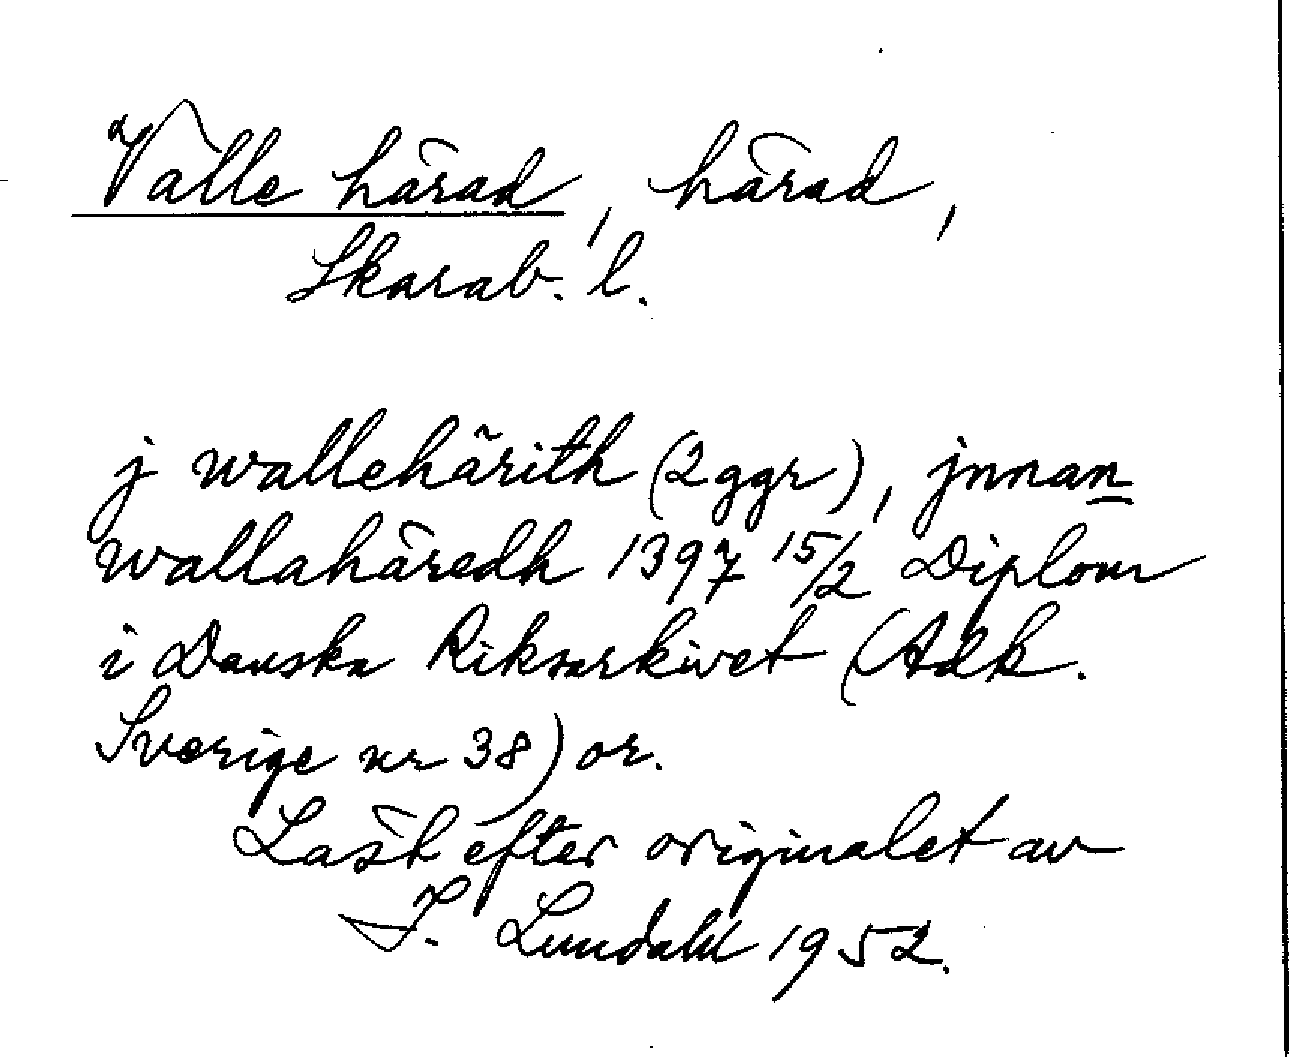 Valle härad, härad,
Skarab. l.
j wallehärith (2 ggr), jnnan
wallahäredh 1397 15/2 Diplom
i Danska Riksarkivet (Adk.
Sverige nr 38) or.
Läst efter originalet av
I. Lundahl 1952.